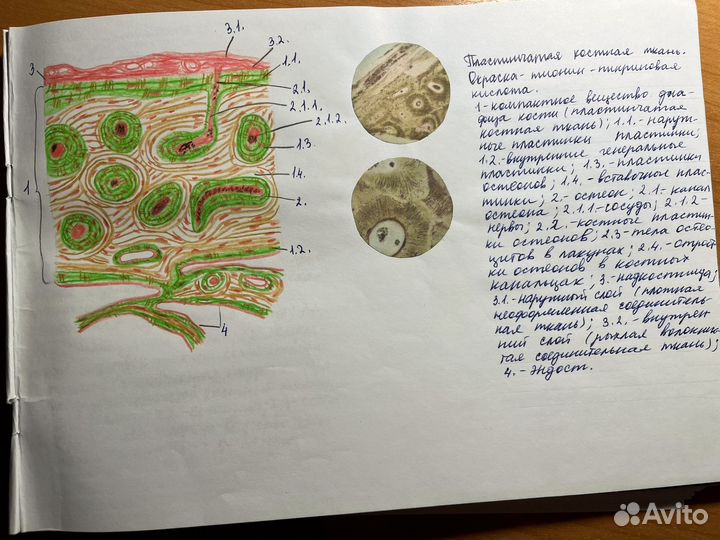 3.1.
3.2.
3
1.1.
2.1.
2.1.1.
2.1.2.
1.3.
1
1.4.
2.
1.2.
4
Пластинчатая костная ткань.
Окраска - тионин - пикриновая
кислота.
1 - компактное вещество диа-
физа кости (пластинчатая
костная ткань); 1.1. - наруж-
ные пластинки пластинки;
1.2. - внутренние генеральные
пластинки; 1.3. - пластинки
остеонов; 1.4. - вставочные плас-
тинки; 2. - остеон; 2.1 - канал
остеона; 2.1.1 - сосуды; 2.1.2 -
нервы; 2.2. - костные пластин-
ки остеонов; 2.3 - тела остео-
цитов в лакунах; 2.4. - отрост-
ки остеонов в костных
канальцах; 3. - надкостница;
3.1. - наружный слой (плотная
неоформленная соединитель-
ная ткань); 3.2. - внутрен-
ний слой (рыхлая волокнис-
тая соединительная ткань);
4. - эндост.
Avito